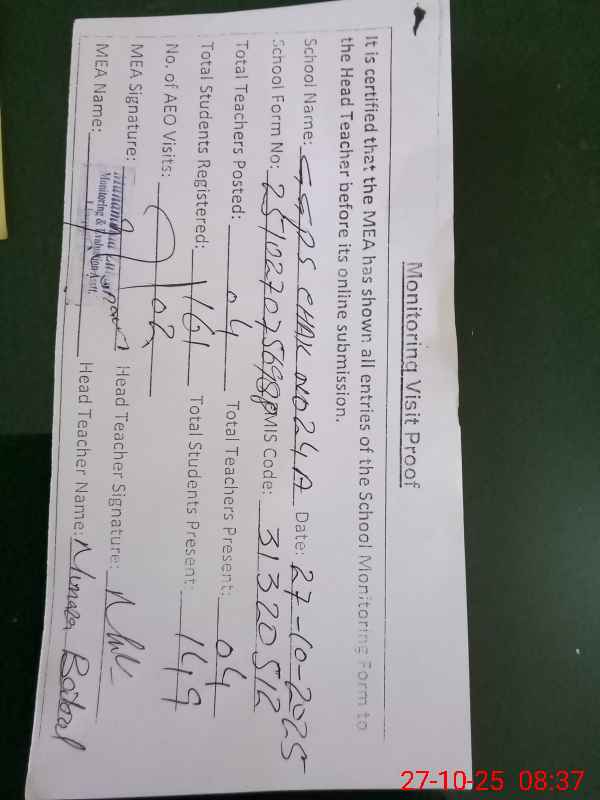 Monitoring Visit Proof
It is certified that the MEA has shown all entries of the School Monitoring Form to
the Head Teacher before its online submission.
School Name: GGPS CHAK NO 24 A Date: 27-10-2025
School Form No: EMIS Code: 31320512
Total Teachers Posted: 04 Total Teachers Present: 04
Total Students Registered: 161 Total Students Present: 149
No. of AEO Visits: 02
MEA Signature: Head Teacher Signature:
MEA Name: Monitoring & Evaluation Asstt. Head Teacher Name:
27-10-25 08:37